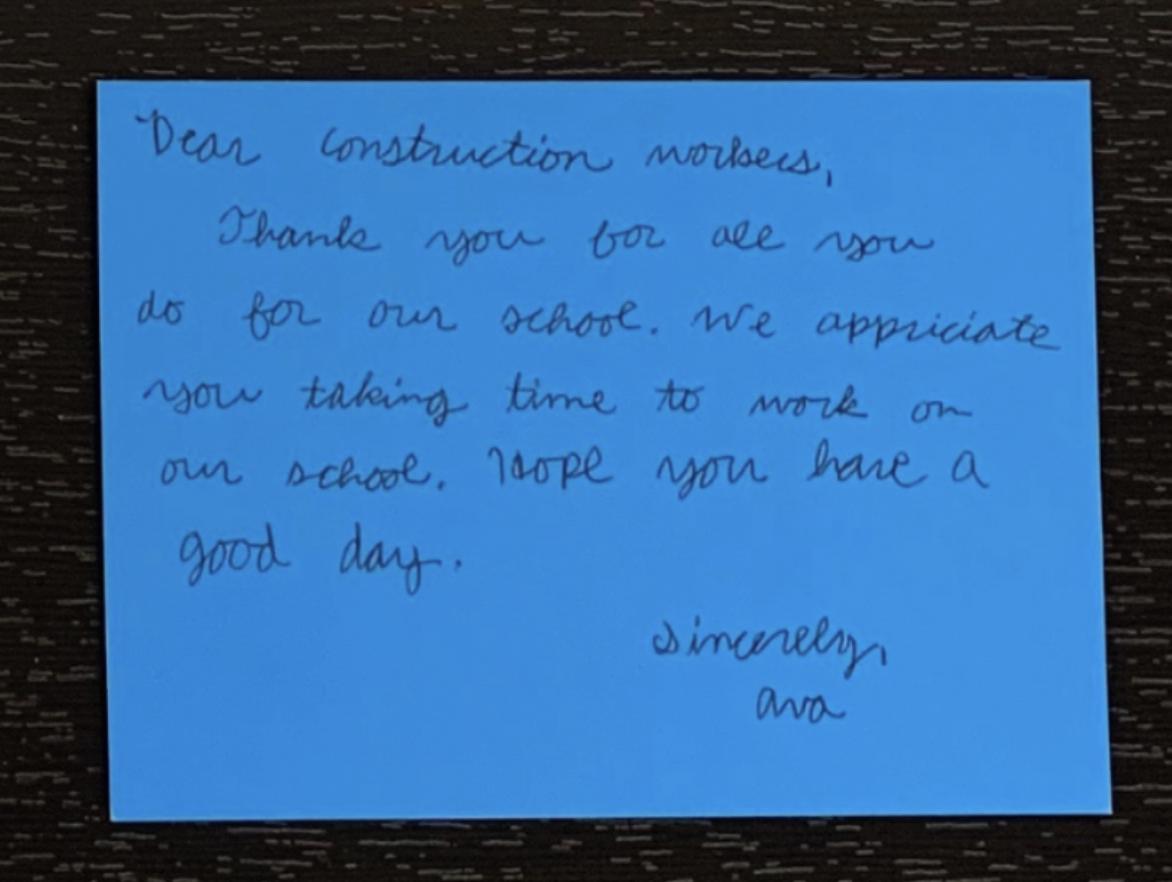 Dear construction workers,
Thank you for all you
do for our school. We appriciate
you taking time to work on
our school. Hope you have a
good day.
Sincerely,
Ava